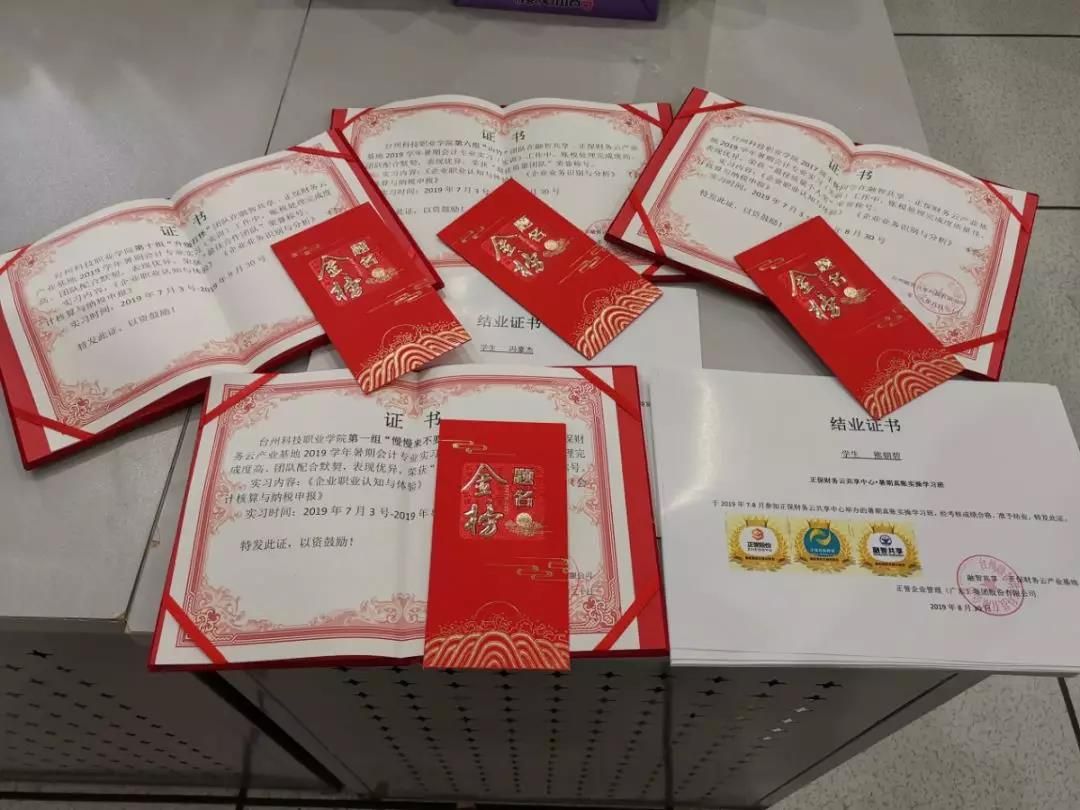 证 书
台州科技职业学院第十组“
”团队在融智共享．正保财务云
产业基地 2019 学年暑期会计专业实习（实训）工作中，账模处理完成度
高、团队配合默契，表现优异，荣获“最佳合作团队”荣誉称号。
实习内容：《企业职业认知与体验》
《企业业务识别与分析》
计核算与纳税申报》
实习时间：2019 年 7 月 3 号-2019 年 8 月 30 号
特发此证，以资鼓励！
证 书
台州科技职业学院第六组“
”团队在融智共享．正保财务云产业
基地 2019 学年暑期会计专业实习（实训）工作中，账模处理完成度高、
团队配合默契，表现优异，荣获
团队”荣誉称号。
实习内容：《企业职业认知与
《企业业务识别与分析》
核算与纳税申报》
实习时间：2019 年 7 月 3
月 30 号
特发此证，以资鼓励！
证 书
台州科技职业学院 2017
同学在融智共享．正保财务云产业基
地 2019 学年暑期会计专业实习（实训）工作中，账模处理完成度质量佳，
表现优异，荣获“最佳质量个人
荣誉称号。
实习内容：《企业职业认知与体验》
《企业业务识别与分析》
核算与纳税申报》
实习时间：2019 年 7 月 3
8 月 30 号
特发此证，以资鼓励！
金榜
题名
金榜
题名
金榜
题名
结业证书
学生
证 书
台州科技职业学院第一组“慢慢来不要
正保财
务云产业基地 2019 学年暑期会计专业实习
理完
成度高、团队配合默契，表现优异，荣获“
号。
实习内容：《企业职业认知与体验》
《会
计核算与纳税申报》
实习时间：2019 年 7 月 3 号-2019 年
特发此证，以资鼓励！
限公司
金榜
题名
结业证书
学生
正保财务云共享中心•暑期真账实操学习班
于 2019 年 7-8 月参加正保财务云共享中心举办的暑期真账实操学习班，经考核成绩合格，准予结业，特发此证。
正保股份
融智共享
融智共享．正保财务云产业基地
正誉企业管理（广东）集团股份有限公司
2019 年 8 月 30 日